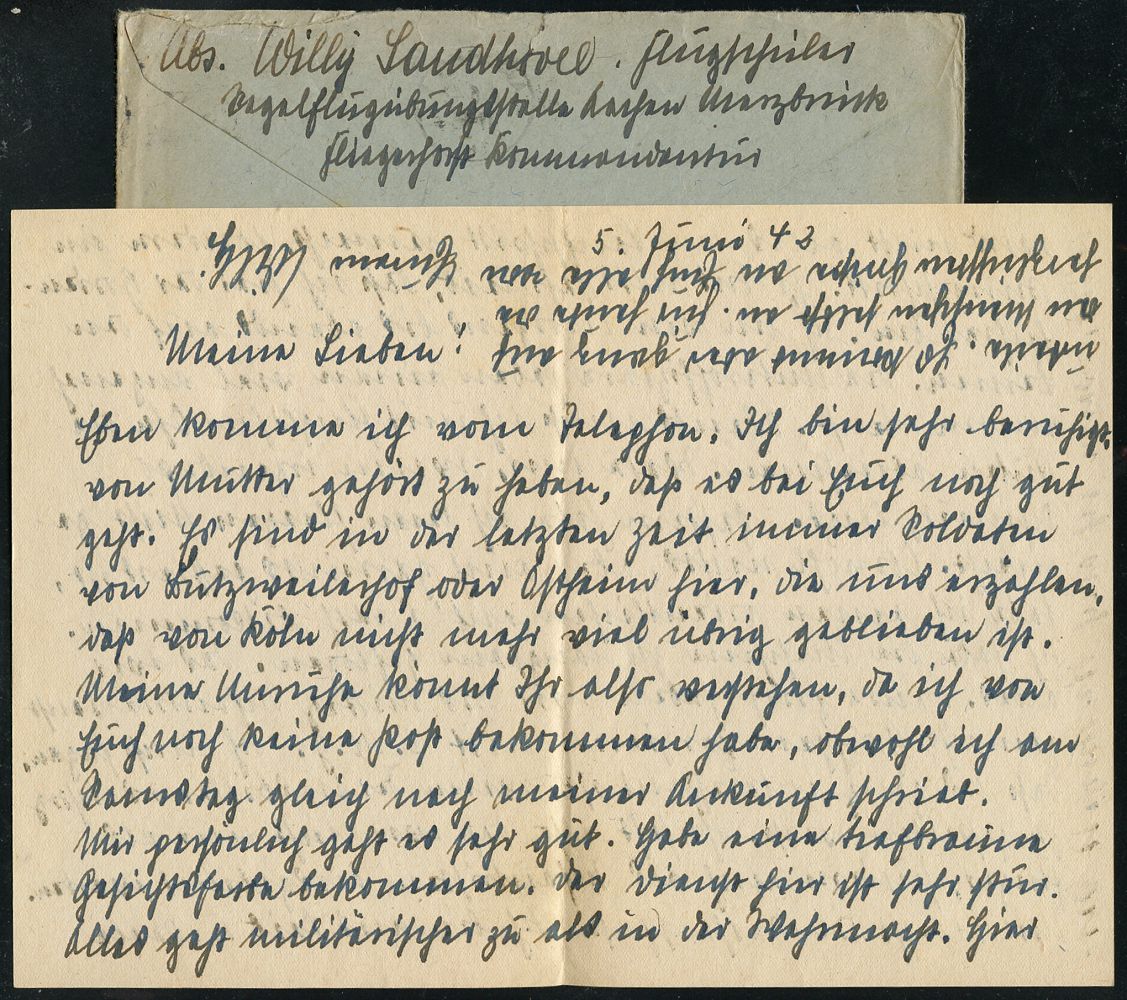 Abs. Willy Sandhövel. Flugschüler
Segelflugübungsstelle Aachen Merzbrück
Fliegerhorst Kommandantur
5. Juni 43
Meine Lieben!
Eben komme ich vom Telephon. Ich bin sehr beruhigt,
von Mutter gehört zu haben, daß es bei Euch noch gut
geht. Es sind in der letzten Zeit immer Soldaten
von Butzweilerhof oder Ostheim hier, die uns erzählen,
daß von Köln nicht mehr viel übrig geblieben ist.
Meine Unruhe könnt Ihr also verstehen, da ich von
Euch noch keine Post bekommen habe, obwohl ich am
Samstag gleich nach meiner Ankunft schrieb.
Mir persönlich geht es sehr gut. Habe eine tiefbraune
Gesichtsfarbe bekommen. Der Dienst hier ist sehr stur.
Alles geht militärischer zu als in der Wehrmacht. Hier